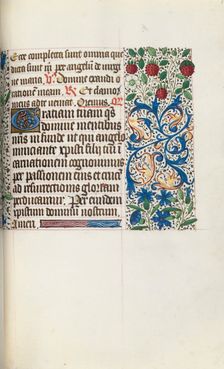 Ecce completa sunt omnia que
dicta sunt per angelū de virgi
ne maria. V. Domine exaudi o
rationē meam. R. Et clamor
meus ad te veniat. Oremus. Or̄
Gratiam tuam qs
domine mentibus
nr̄is infunde ut qui angelo
nunciante xp̄isti filij tui in
carnationem cognouimus
per passionem eius et crucē
ad resurrectionis gloriam
perducamur. Per eundem
xp̄istum dominū nostrum.
Amen.